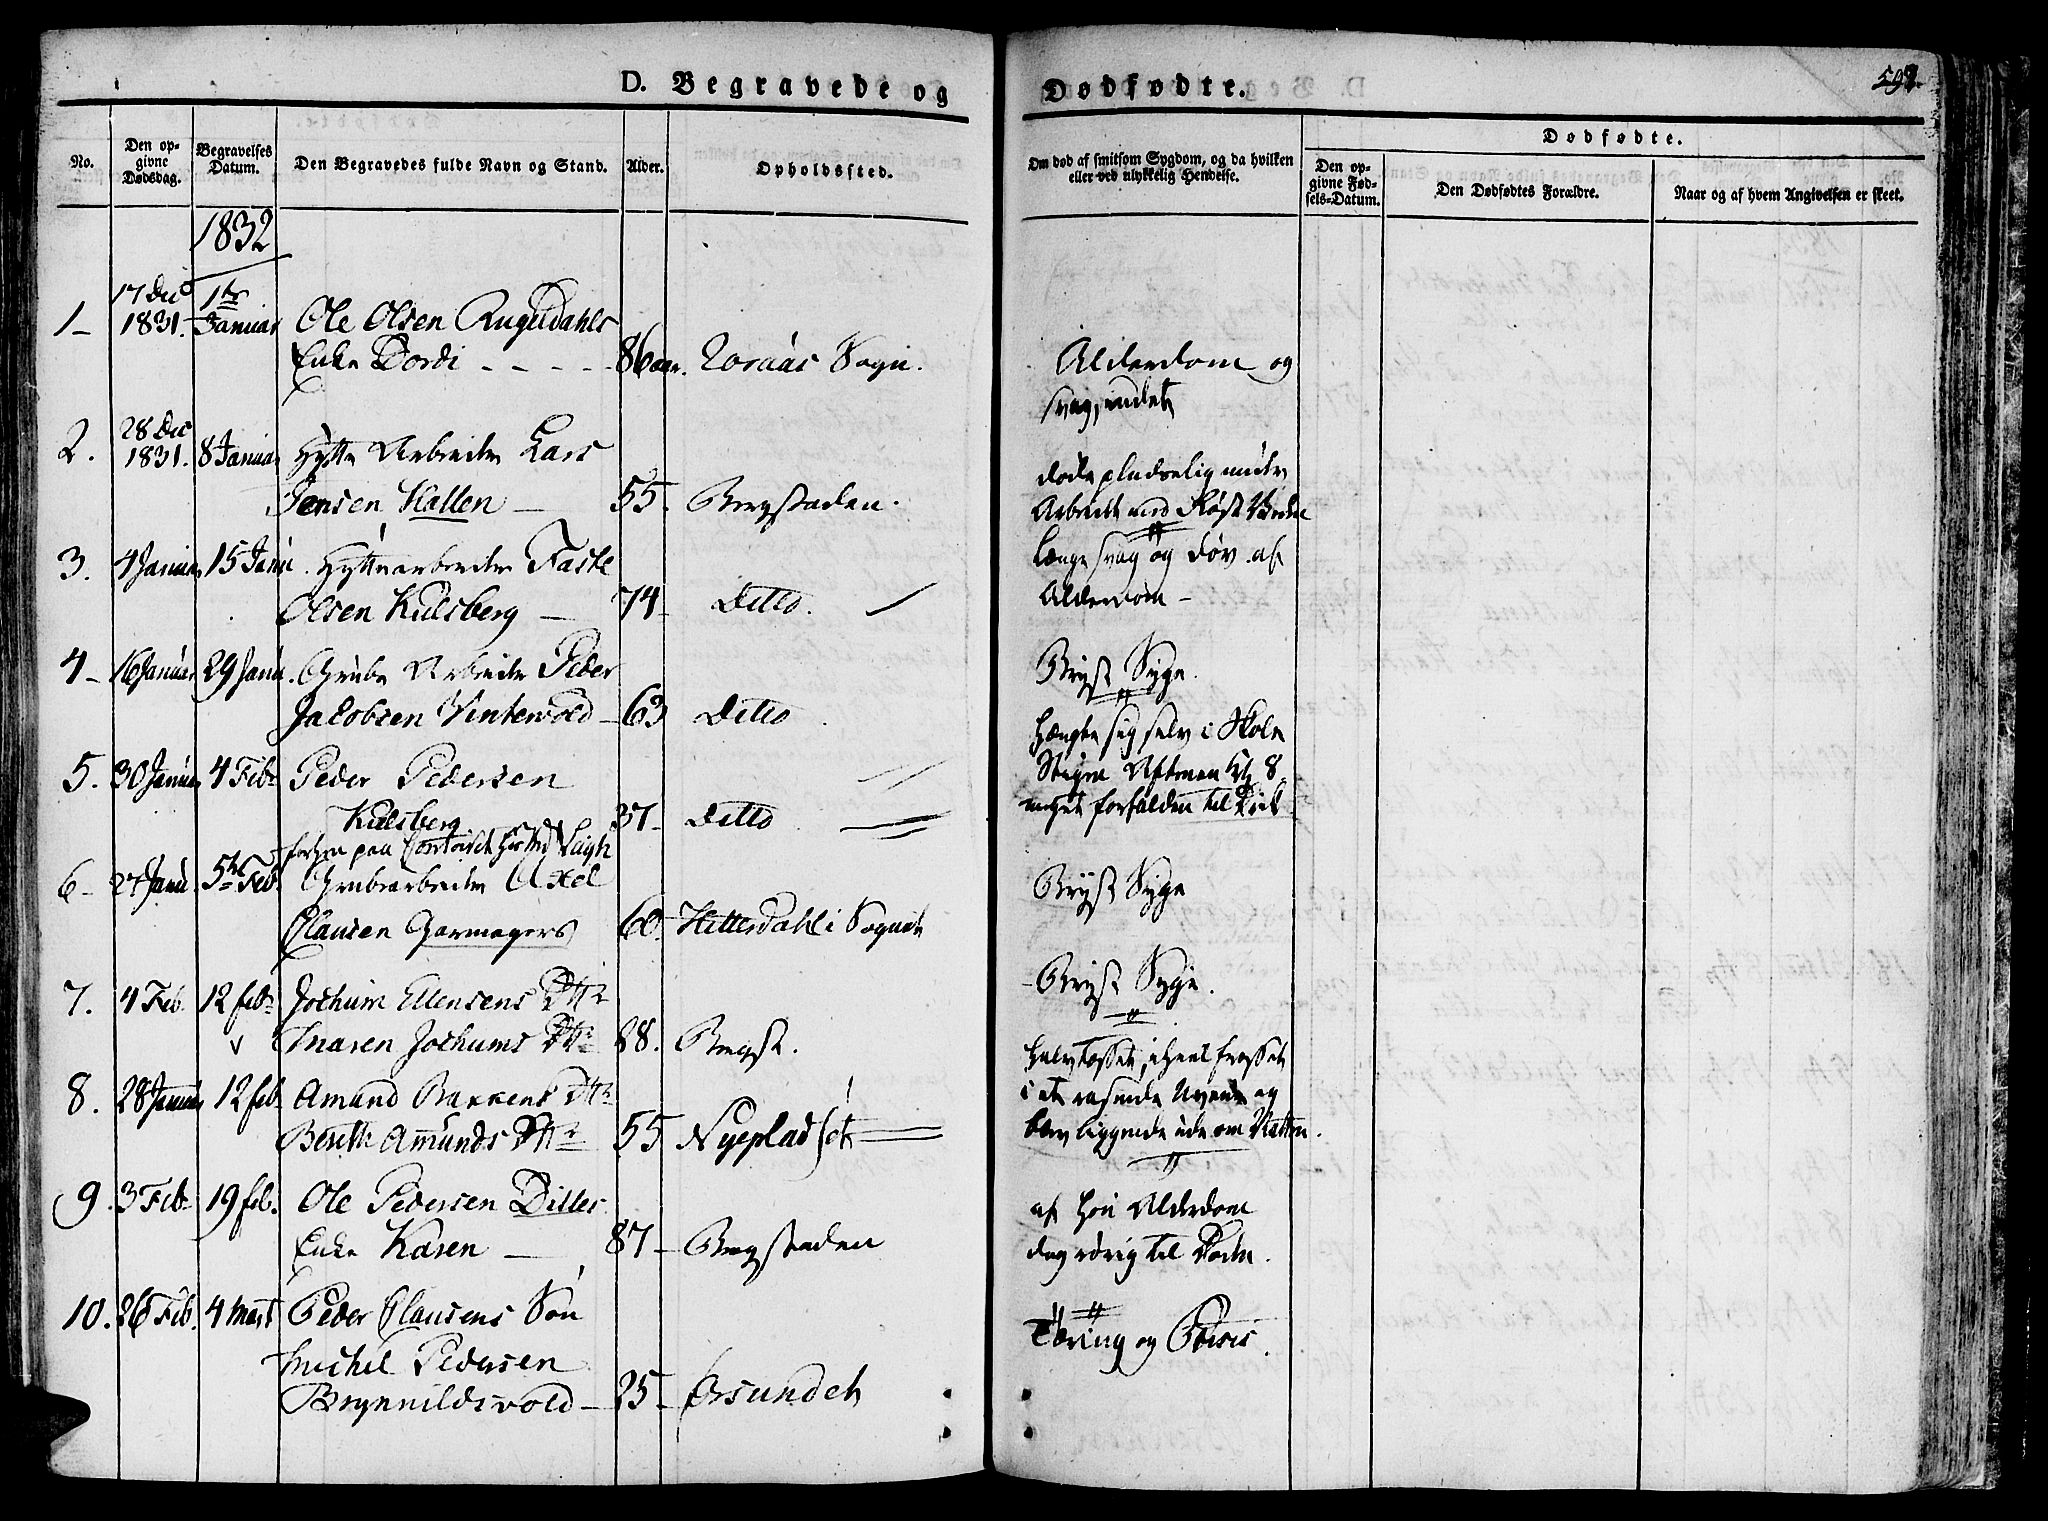 D. Begravede og Dødfødte.
597.
No.
Den op-
givne
Dødsdag.
Begravelses
Datum.
Den Begravedes fulde Navn og Stand.
Alder.
Opholdssted.
Om død af smitsom Sygdom, og da hvilken
eller ved ulykkelig Hendelse.
Dødfødte.
Den op-
givne Fød-
sels-Datum.
Den Dødfødtes Forældre.
Naar og af hvem Angivelsen er skeet.
1832
17 Dec
1831.
1te
Januar
1 Ole Olsen
Enke Dordi 86 aar. Sogn.
Alderdom og
svag,
28 Dec
1831.
2. 8 Januar Hytte Arbeider Lars
Jensen Hallen 55. Bergstaden.
døde pludselig
Arbeidet ved Røst
3. 4 Januar 15 Janu. Hyttearbeider Faste
Olsen Kulsberg 74 Ditto.
længe svag og døv af
Alderdom
4 16 Januar 29 Janu. Grube Arbeider Peder
Jacobsen Vintervold 63 Ditto
Bryst Syge.
5. 30 Januar 4 Feb. Peder Pedersen
Kulsberg 37 Ditto
hængte sig selv i Skole
Stigen Aftenen Kl 8
meget forfalden til Drik
forhen paa Contoiret hos
6 27 Janu. 5te Feb. Grubearbeider Axel
Clausen Garmagers 60 Hitterdahl i Sognet
Bryst Syge
7. 4 Feb. 12 feb. Jochum Ellensens Dtr
Maren Jochums Dtr 28. Bergst.
Bryst Syge.
8. 28 Januar 12 feb. Amund Bakkens Dtr
Berith Amunds Dtr 55 Nyepladset
i et rasende og
blev liggende ude om Natten.
9. 3 Feb. 19 feb. Ole Pedersen Dilles
Enke Karen 87 Bergstaden
af høi Alderdom
dog rörig til Døden.
10. 26 Feb. 4 Marts Peder Clausens Søn
Michel Pedersen
Brynnildsvold 25 Ørsundet
Tæring og